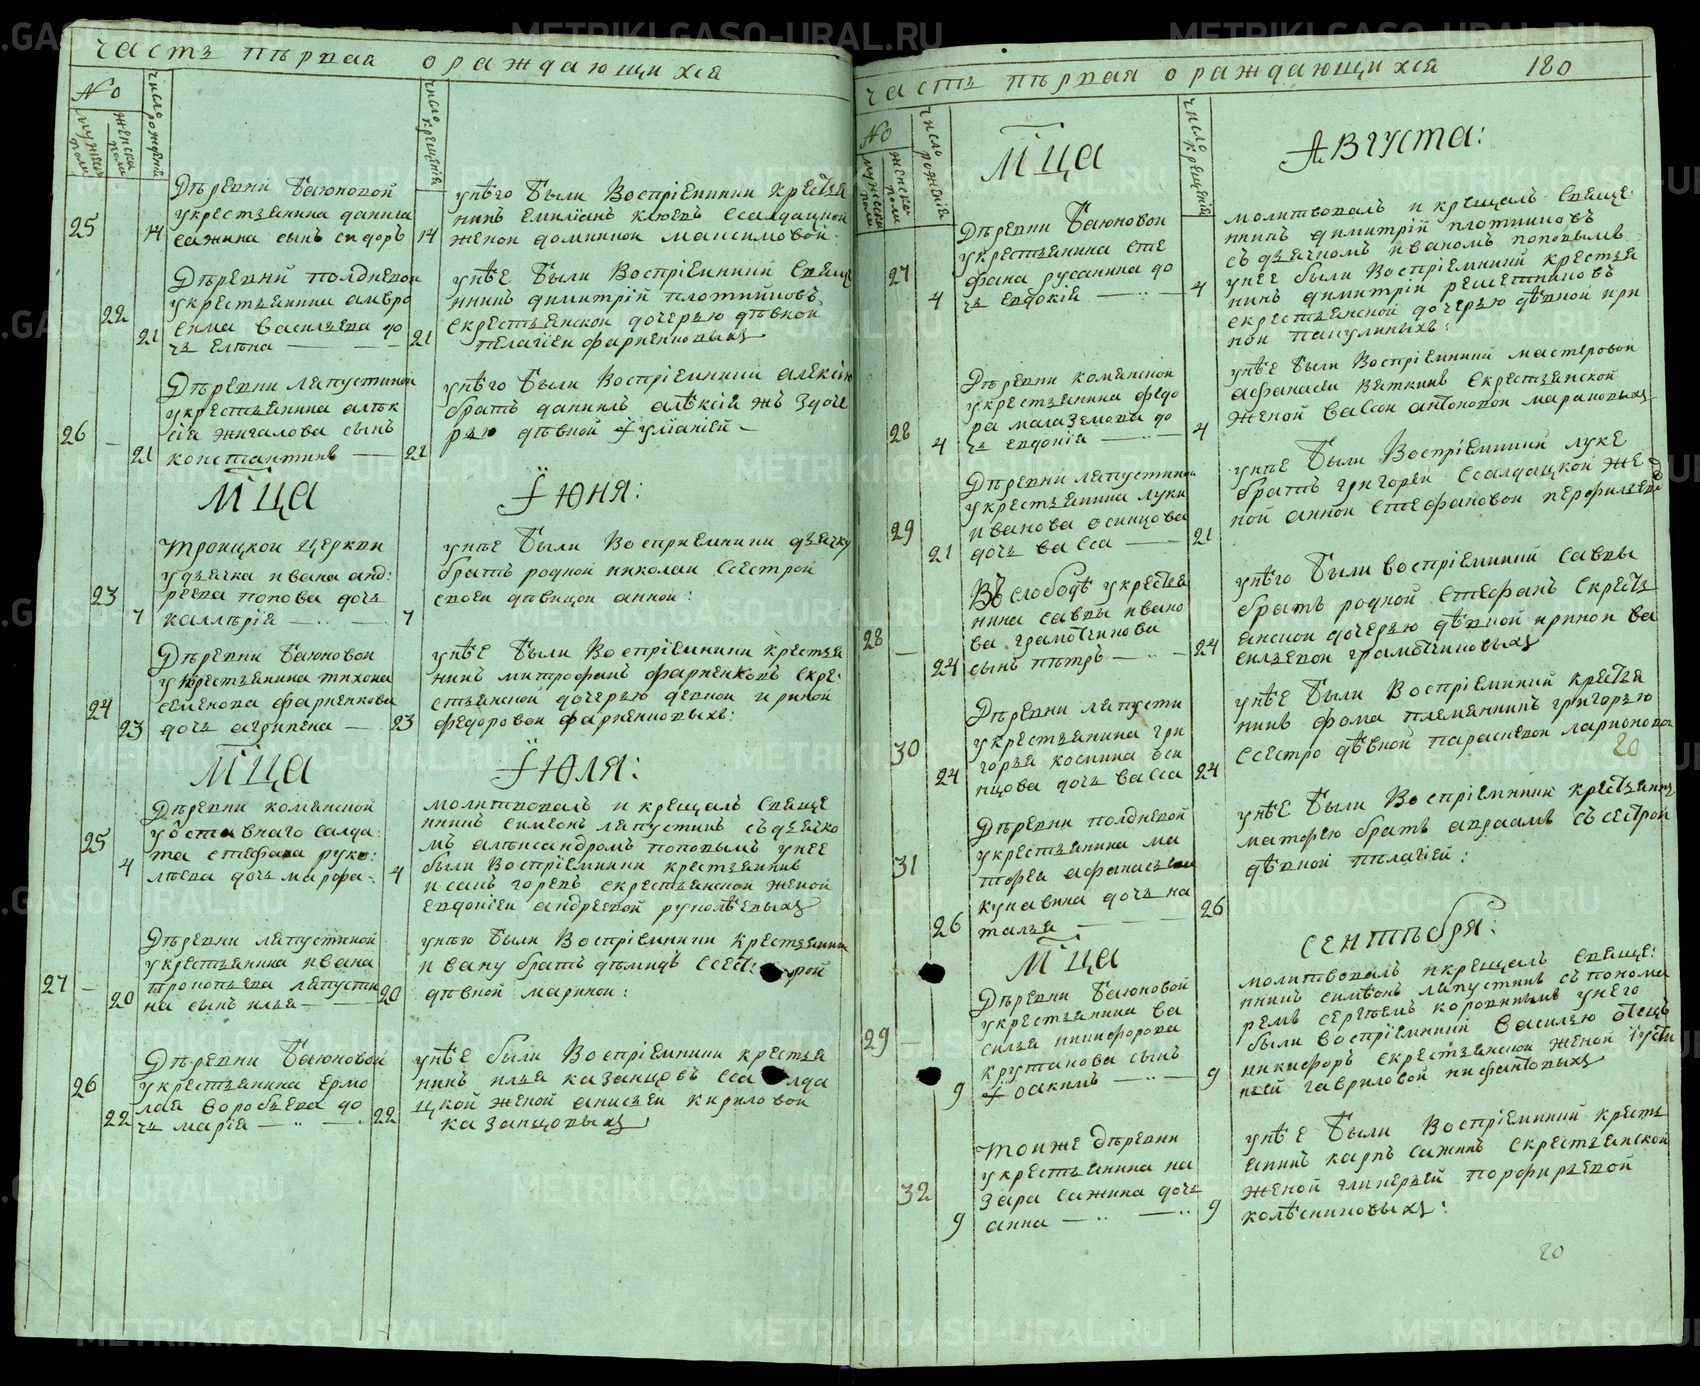 часть пѣрвая о раждающихся
№
мужеска пола
женска пола
число рожденій
число крещенія
25
14
Дѣревни Баюновой
укрестьянина данила
сажина сынъ сидоръ
14
унѣго были Воспріемники крестья
нинъ емиліанъ клюевъ ссалдацкой
женой домникой максимовой:
22
21
Дѣревни полдневой
укрестьянина амвро
сима Васильева до
чь елѣна
21
унѣе были Воспріемники Свяще
нникъ димитрій плотниковъ
скрестьянской дочерью дѣвкой
пелагіеи фарненковыхъ
26
21
Дѣревни ляпустиной
укрестьянина алѣк
сія жигалова сынъ
константинъ
21
унѣго были Воспріемники алексію
братъ данилъ алѣксія жъ здоче
рью дѣвкой іуліаніей
мца іюня:
23
7
троицкой церкви
удьячка ивана анд:
реева попова дочь
каллѣрія
7
унѣе были Восприемники дьячку
братъ родной николаи Ссестрой
своеи дѣвицой анной:
24
23
Дѣревни Баюновой
укрестьянина тихона
семенова фарненкова
дочь агрипена
23
унѣе были Воспріемники крестья
нинъ митрофанъ фарненковъ скре:
стьянской дочерью девкой ириной
федоровой фарненковыхъ:
мца іюля:
25
4
Дѣревни комянской
уотставнаго салда:
та стефана руко:
лѣева дочь марфа
4
молитвовалъ и крещалъ Свяще
нникъ симеонъ ляпустинъ съдьячко
мъ алѣксандромъ поповымъ унее
были Воспріемники крестьянинъ
исакъ горевъ скрестьянской женой
евдокіеи андреевой руколѣевыхъ
27
20
Дѣревни ляпустиной
укрестьянина ивана
прокопьева ляпусти
на сынъ илья
20
унѣго были Воспріемники крестьянину
ивану братъ дѣмидъ ссест:рой
дѣвкой мариной:
26
22
Дѣревни Баюновой
укрестьянина ермо
лая воробьева до
чь марія
22
унѣе были Воспріемники крестья
нинъ илья казанцовъ сса лда
цкой женой анисьеи кириловой
казанцовыхъ
часть пѣрвая о раждающихся 180
№
мужеска пола
женска пола
число рожденія
число крещенія
мца Августа:
27
4
Дѣревни Баюновой
укрестьянина сте
фана русакина до
чь евдокія
4
молитвовалъ и крещалъ Свяще:
нникъ димитрій плотниковъ
съ дьячкомъ иваномъ поповымъ
унее были Воспріемники крестья
нинъ димитрій решетниковъ
скрестьянской дочерью дѣвкой ири
ной пакулиныхъ:
28
4
Дѣревни комянской
укрестьянина федо
ра малаземова до
чь евдокія
4
унѣе были Воспріемники мастеровой
афанасеи вяткинъ скрестьянской
женой Вассой антоновой марановыхъ
29
21
Дѣревни ляпустиной
укрестьянина луки
иванова осинцова
дочь васса
21
унѣе были Воспріемники луке
братъ григореи ссалдацкой же
ной анной стефановой перфильевой
28
24
Въ слободѣ укрестья
нина савы ивано
ва грамотчикова
сынъ пѣтръ
24
унѣго были воспріемники савы
братъ родной стефанъ скресть
янской дочерью дѣвкой ириной ва
сильевой грамотчиковыхъ
30
24
Дѣревни ляпусти
укрестьянина гри
горья коскина оси
нцова дочь васса
24
унѣе были Воспріемники крестья
нинъ фома племянникъ григорью
ссестро дѣвкой параскевой ларионовой
20
31
26
Дѣревни полдневой
укрестьянина ма
тфея афанасьева
кунавина дочь на
талья
26
унѣе были Воспріемники крестьянину
матфею братъ авраамъ съ сестрой
дѣвкой пѣлагіей:
мца сентября:
29
9
Дѣревни Баюновой
укрестьянина ва
силья никифорова
крутакова сынъ
іоакимъ
9
молитвовалъ икрещалъ свяще:
нникъ симѣонъ ляпустинъ съ понома
ремъ сергѣемъ коровинымъ унего
были воспріемники василью отецъ
никифоръ скрестьянской женой густи
ньей гавриловой нифантовыхъ
32
9
тойже дѣревни
укрестьянина на
зара сажина дочь
анна
9
унѣе были Воспріемники кресть
янинъ карпъ сажинъ скрестьянской
женой гликерьей порфирьевой
колѣсниковыхъ:
20
METRIKI.GASO-URAL.RU